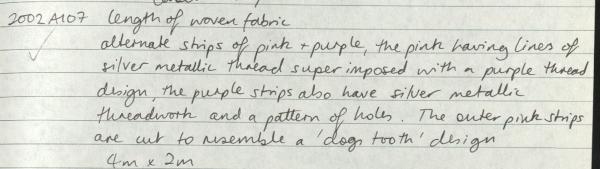 2002 A107 length of woven fabric
alternate strips of pink + purple, the pink having lines of
silver metallic thread super imposed with a purple thread
design, the purple strips also have silver metallic
threadwork and a pattern of holes. The outer pink strips
are cut to resemble a 'dogs tooth' design
4m x 2m